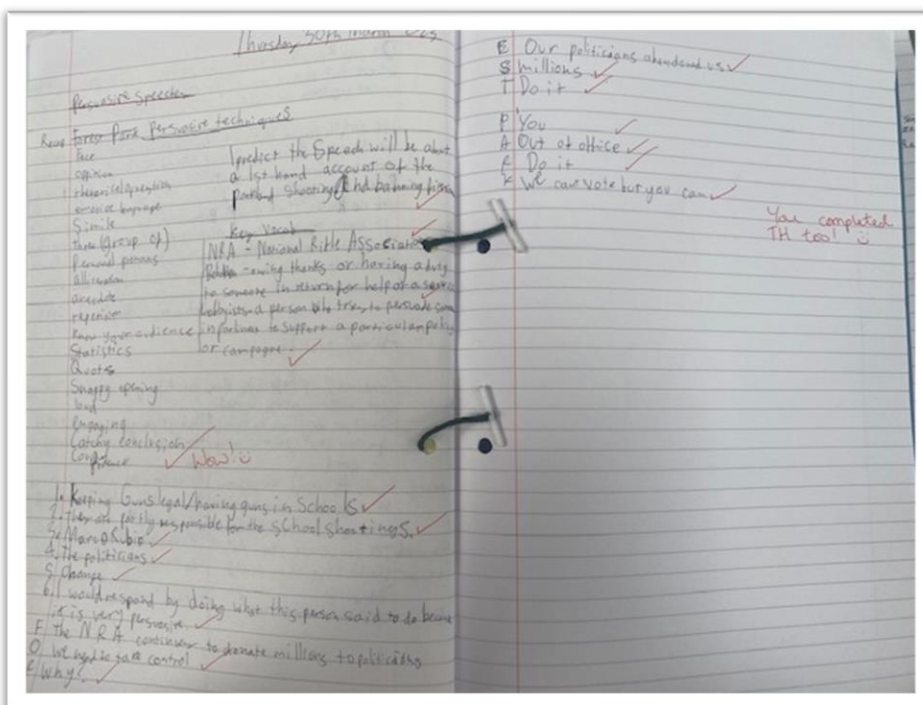 Thursday 30th March
Persuasive Speeches
Forest Park Persuasive techniques
Face
oppinion
rhetorical question
emotive language
Simile
three (group of)
Personal
Alliteration
anecdote
repetition
Know your audience
Statistics
Quotes
Snappy opening
loud
Engaging
Catchy conclusion
Wow!
I predict the Speech will be about
a 1st hand account of the
parkland shooting and banning
Key Vocab
NRA - National Rifle Association
owing thanks or having a duty
to someone in return for help or a
lobbyists - a person who tries to persuade
in parliment to support a particular
or campagne.
1. Keeping Guns legal/having guns in Schools
2. They are partly responsible for the school shootings.
3. Marco Rubio
4. The politicians
5. Change
6. I would respond by doing what this person said to do because
it is very persuasive.
F The NRA continues to donate millions to politicians
O We need to take control
R Why?
E Our politicians abandond us
S millions
T Do it
P You
A Out of office
R Do it
K We can vote but you can
You completed
TH too!